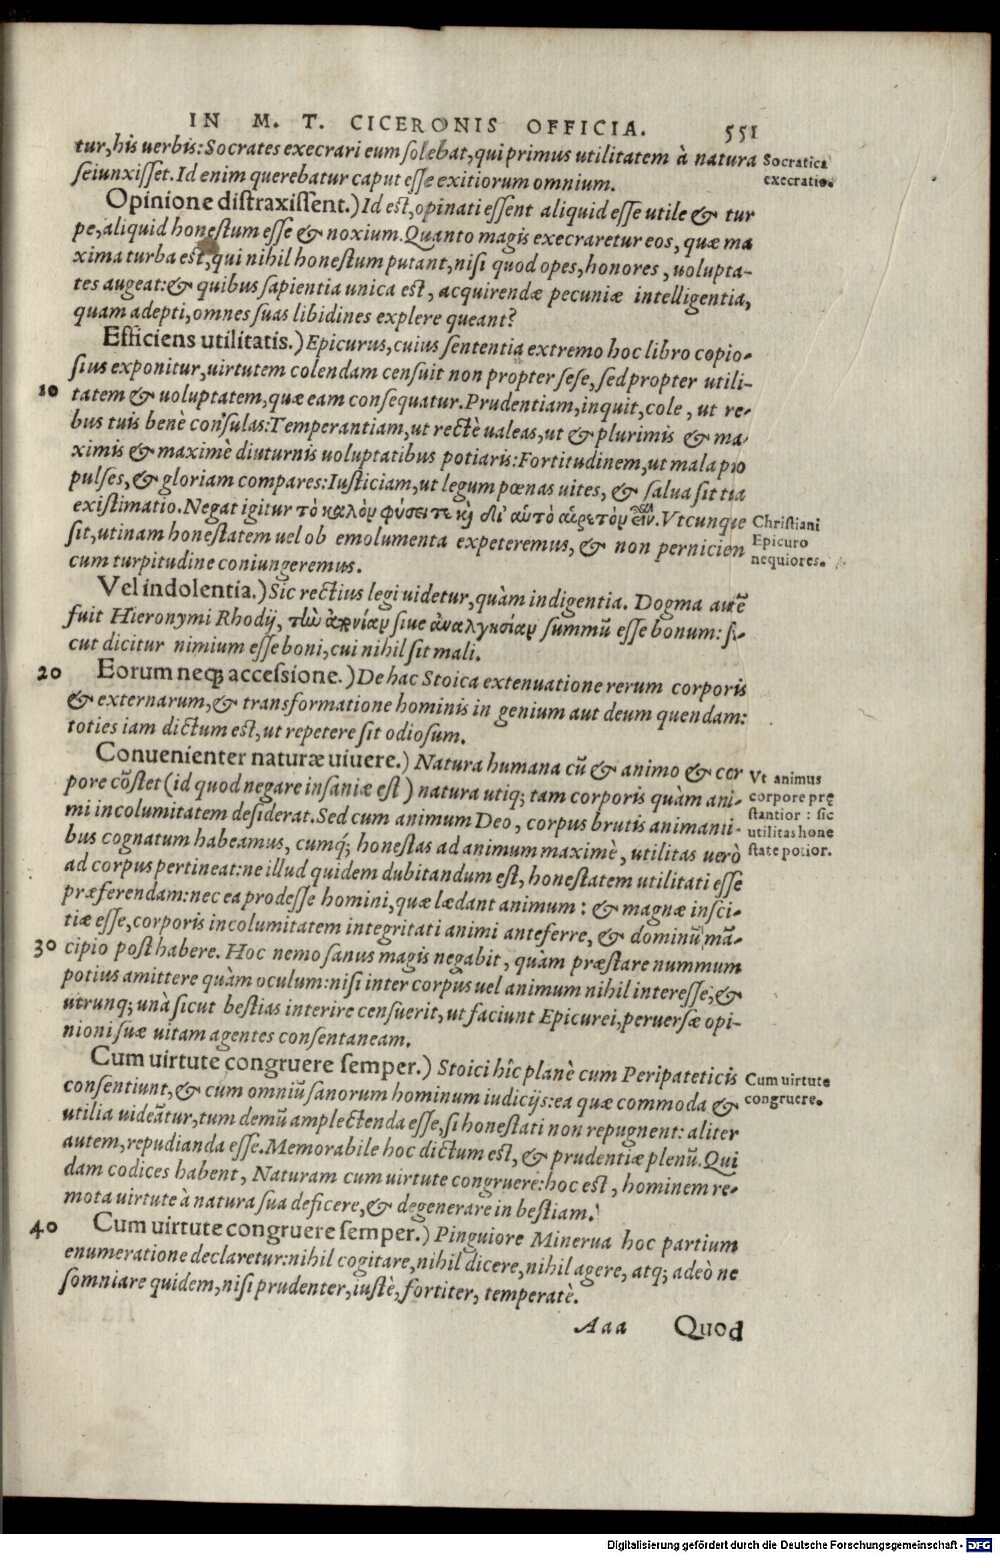 IN M. T. CICERONIS OFFICIA. 551
tur, his uerbis: Socrates execrari eum solebat, qui primus utilitatem à natura
Socratica
seiunxisset. Id enim querebatur caput esse exitiorum omnium.
execratio.
Opinione distraxissent.) Id est, opinati essent aliquid esse utile & tur
pe, aliquid honestum esse & noxium. Quanto magis execraretur eos, quæ ma
xima turba est, qui nihil honestum putant, nisi quod opes, honores, uolupta-
tes augeat: & quibus sapientia unica est, acquirendæ pecuniæ intelligentia,
quam adepti, omnes suas libidines explere queant?
Efficiens utilitatis.) Epicurus, cuius sententia extremo hoc libro copio-
sius exponitur, uirtutem colendam censuit non propter sese, sed propter utili-
10 tatem & uoluptatem, quæ eam consequatur. Prudentiam, inquit, cole, ut re-
bus tuis benè consulas: Temperantiam, ut rectè ualeas, ut & plurimis & ma-
ximis & maximè diuturnis uoluptatibus potiaris: Fortitudinem, ut mala pro
pulses, & gloriam compares: Iusticiam, ut legum pœnas uites, & salua sit tua
existimatio. Negat igitur τὸ καλὸν φύσει τε καὶ δι' αὑτὸ αἱρετὸν εἶναι. Vtcunque
Christiani
sit, utinam honestatem uel ob emolumenta expeteremus, & non pernicien
Epicuro
cum turpitudine coniungeremus.
nequiores.
Vel indolentia.) Sic rectius legi uidetur, quàm indigentia. Dogma autē
fuit Hieronymi Rhodij, τὴν ἀπονίαν siue ἀναλγησίαν summū esse bonum: si-
cut dicitur nimium esse boni, cui nihil sit mali.
20 Eorum neq; accessione.) De hac Stoica extenuatione rerum corporis
& externarum, & transformatione hominis in genium aut deum quendam:
toties iam dictum est, ut repetere sit odiosum.
Conuenienter naturæ uiuere.) Natura humana cū & animo & cor
Vt animus
pore cōstet (id quod negare insaniæ est) natura utiq; tam corporis quàm ani-
corpore prę
mi incolumitatem desiderat. Sed cum animum Deo, corpus brutis animanti-
stantior: sic
bus cognatum habeamus, cumq; honestas ad animum maximè, utilitas uerò
utilitas hone
state potior.
ad corpus pertineat: ne illud quidem dubitandum est, honestatem utilitati esse
præferendam: nec ea prodesse homini, quæ lædant animum: & magnæ insci-
tiæ esse, corporis incolumitatem integritati animi anteferre, & dominū mā-
30 cipio posthabere. Hoc nemo sanus magis negabit, quàm præstare nummum
potius amittere quàm oculum: nisi inter corpus uel animum nihil interesse, &
utrunq; unà sicut bestias interire censuerit, ut faciunt Epicurei, peruersæ opi-
nioni suæ uitam agentes consentaneam.
Cum uirtute congruere semper.) Stoici hîc planè cum Peripateticis
Cum uirtute
consentiunt, & cum omniū sanorum hominum iudicijs: ea quæ commoda &
congruere.
utilia uideātur, tum demū amplectenda esse, si honestati non repugnent: aliter
autem, repudianda esse. Memorabile hoc dictum est, & prudentiæ plenū. Qui
dam codices habent, Naturam cum uirtute congruere: hoc est, hominem re-
mota uirtute à natura sua deficere, & degenerare in bestiam.
40 Cum uirtute congruere semper.) Pinguiore Minerua hoc partium
enumeratione declaretur: nihil cogitare, nihil dicere, nihil agere, atq; adeò ne
somniare quidem, nisi prudenter, iustè, fortiter, temperatè.
Aaa Quod
Digitalisierung gefördert durch die Deutsche Forschungsgemeinschaft - DFG